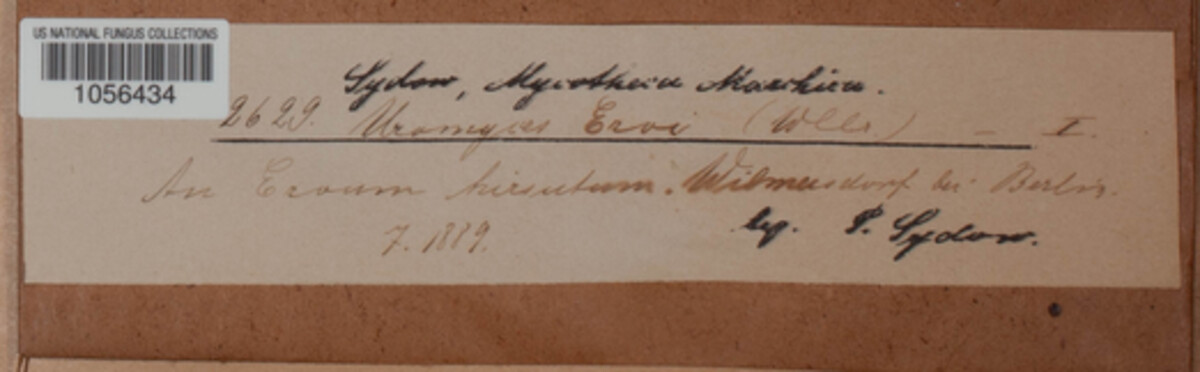 US NATIONAL FUNGUS COLLECTIONS
1056434
Sydow, Mycotheca Marchica.
2629. Uromyces Ervi (Wllr.) – I.
An Ervum hirsutum. Wilmersdorf bei Berlin.
7. 1889.
leg. P. Sydow.